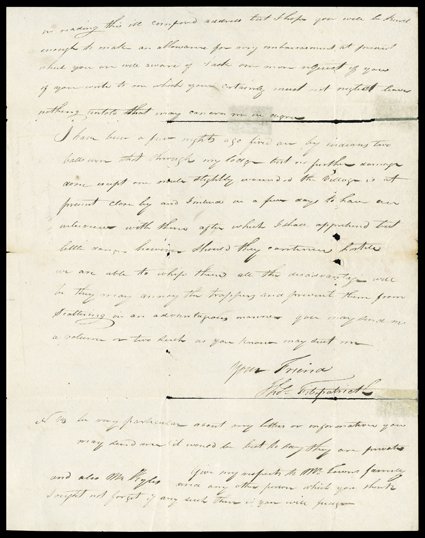 in reading this ill composed address but I hope you will be kind
enough to make an allowance for my embarrassment at present
which you are well aware of I ask one more request of you
if you write to me which you certainly must not neglect leave
nothing untold that may concern me in
I have been a few nights ago fired on by indians two
balls went through my lodge but no further damage
done except one mule slightly wounded the Village is at
present close by and I intend in a few days to have an
interview with them after which I shall apprehend but
little danger should they continue hostile
we are able to whip them all the disadvantage will
be they may annoy the trappers and prevent them from
scattering in an advantageous manner you may send me
a volume or two such as you know may suit me
Your Friend
Thos. Fitzpatrick
NB be very particular about my letter or information you
may send me it would be best to say they are private
give my respects to Mr. family
and also Mr and any other person which you think
I ought not forget if any such there is you will judge